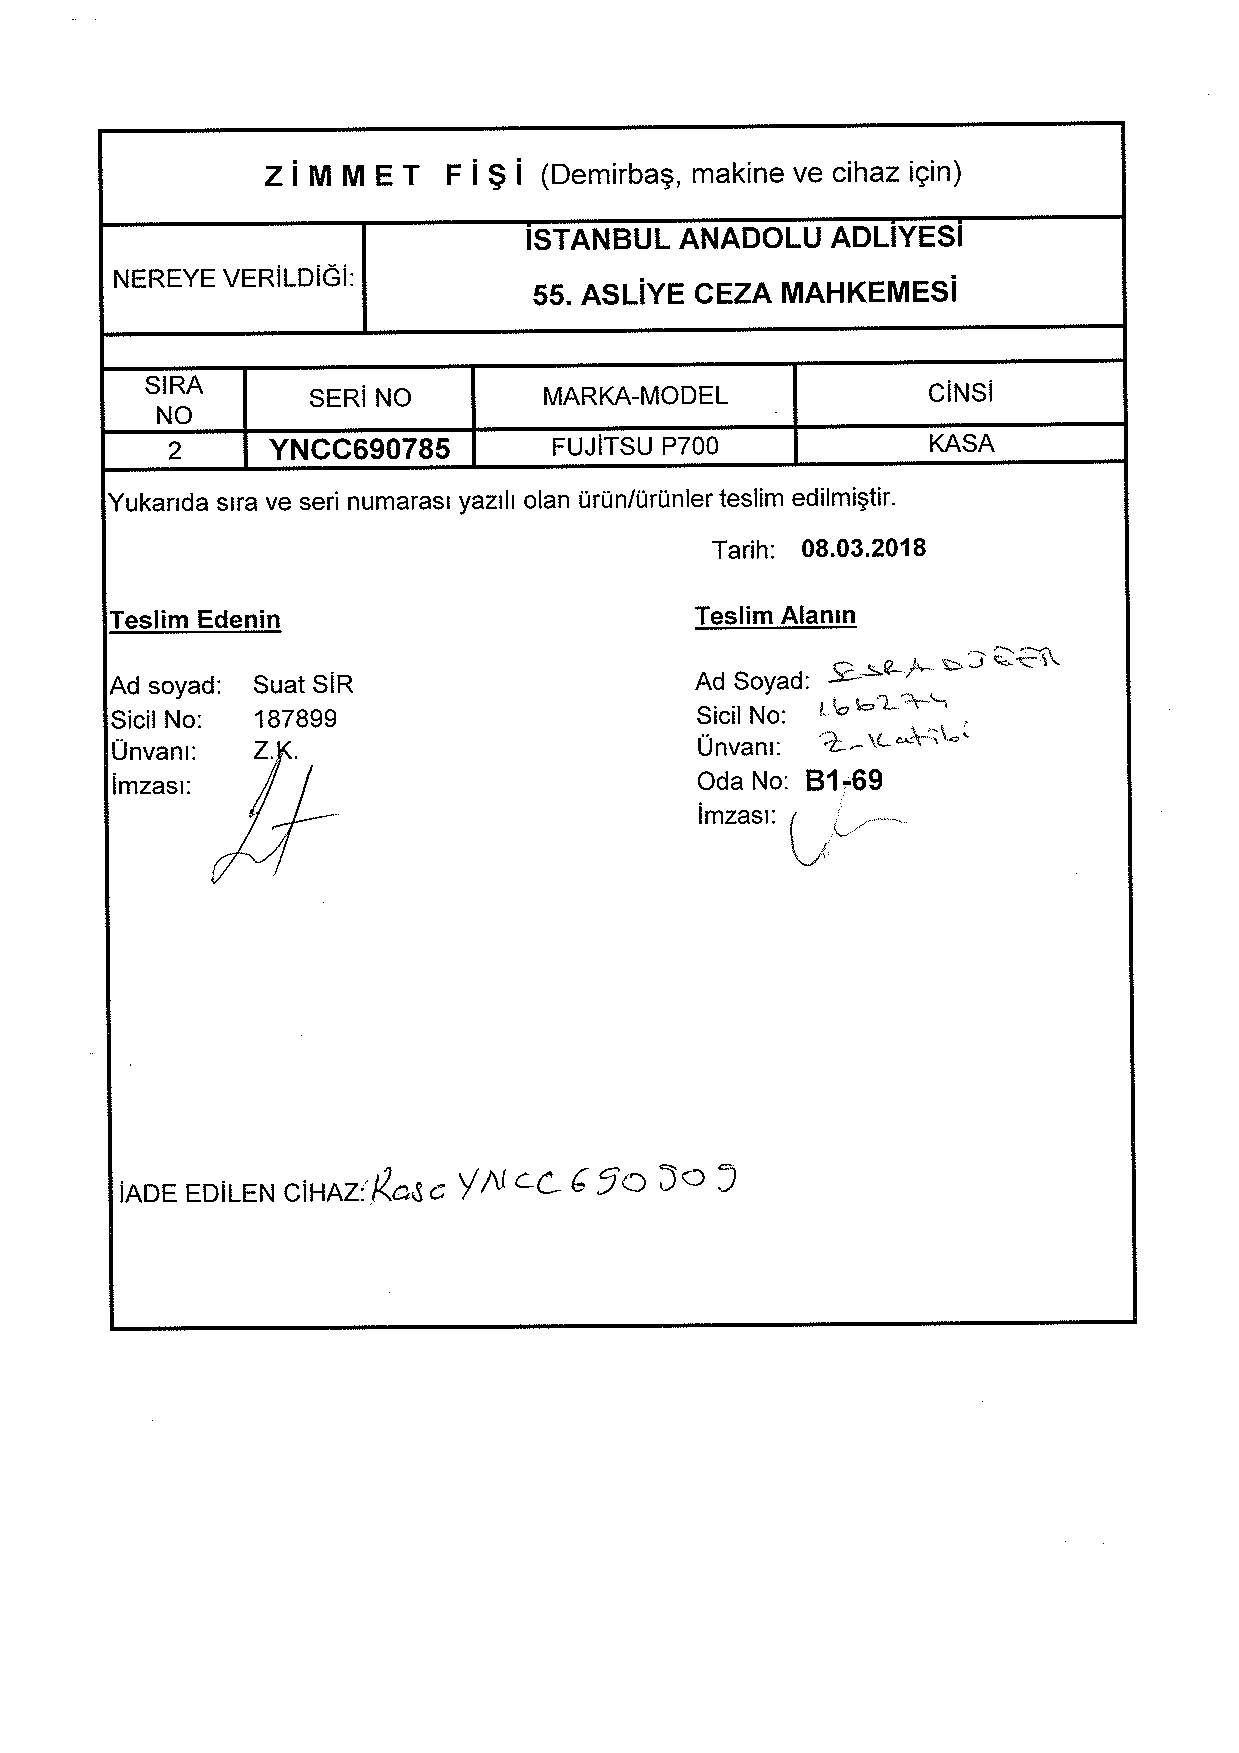 ZİMMET FİŞİ (Demirbaş, makine ve cihaz için)
NEREYE VERİLDİĞİ:
İSTANBUL ANADOLU ADLİYESİ
55. ASLİYE CEZA MAHKEMESİ
SIRA NO SERİ NO MARKA-MODEL CİNSİ
2 YNCC690785 FUJİTSU P700 KASA
Yukarıda sıra ve seri numarası yazılı olan ürün/ürünler teslim edilmiştir.
Tarih: 08.03.2018
Teslim Edenin
Ad soyad: Suat SİR
Sicil No: 187899
Ünvanı: Z.K.
İmzası:
Teslim Alanın
Ad Soyad: ESRA
Sicil No: 166274
Ünvanı: Z-Katibi
Oda No: B1-69
İmzası:
İADE EDİLEN CİHAZ: Kasa YNCC690909